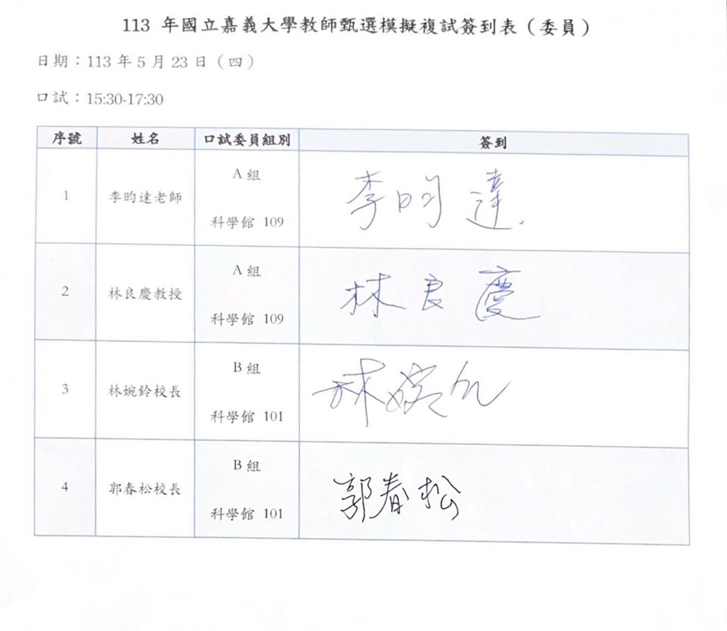 113 年國立嘉義大學教師甄選模擬複試簽到表（委員）
日期：113 年 5 月 23 日（四）
口試：15:30-17:30
序號 姓名 口試委員組別 簽到
1 李昀達老師 A 組 科學館 109 李昀達
2 林良慶教授 A 組 科學館 109 林良慶
3 林婉鈴校長 B 組 科學館 101 林婉鈴
4 郭春松校長 B 組 科學館 101 郭春松